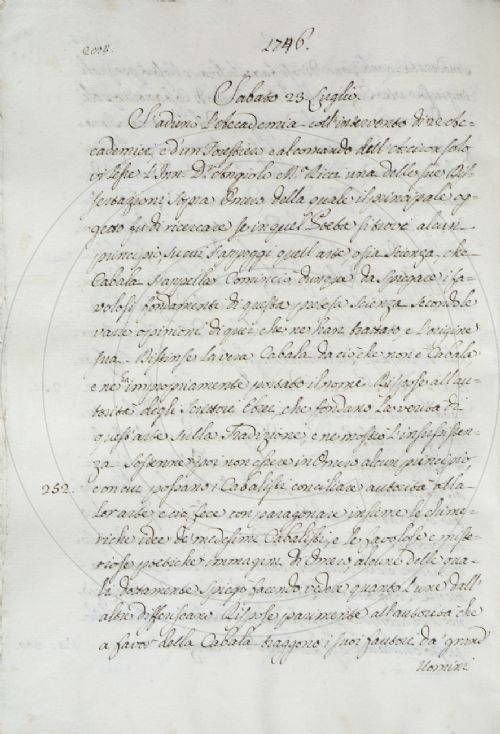 1746.
Sabato 23 Luglio.
Si adunò l'Accademia coll'intervento di 22 Ac-
cademici, e d'un Forestiere e al comando dell'
vi lesse l'Inn. D.r Angiolo M.a Ricci una delle sue Dis-
sertazioni sopra Omero della quale il principale og-
getto fu di ricercare se in quel Poeta si trovi alcun
principio su cui s'appoggi quell'arte o sia scienza, che
Cabala s'appella. Cominciò dunque da spiegare i fa-
volosi fondamenti di questa pretesa scienza secondo le
varie opinioni di quei che ne hanno trattato, e l'origine
sua. Distinse la vera Cabala da ciò che non è Cabala
e ne ha impropriamente portato il nome. Rispose all'au-
torità degli Scrittori Ebrei, che fondano la verità di
quest'arte sulla Tradizione, e ne mostrò l'insussisten-
za. Sostenne poi non essere in Omero alcun principio
252. con cui possano i Cabalisti conciliare autorità alla
lor arte e ciò fece con paragonare insieme le chime-
riche idee de medesimi Cabalisti, e le favolose e miste-
riose poetiche immagini di Omero, alcune delle qua-
li dottamente spiegò facendo vedere quanto l'une dall'
altre differiscano. Rispose parimente all'autorità che
a favor della Cabala traggono i suoi fautori da' grand'
Uomini